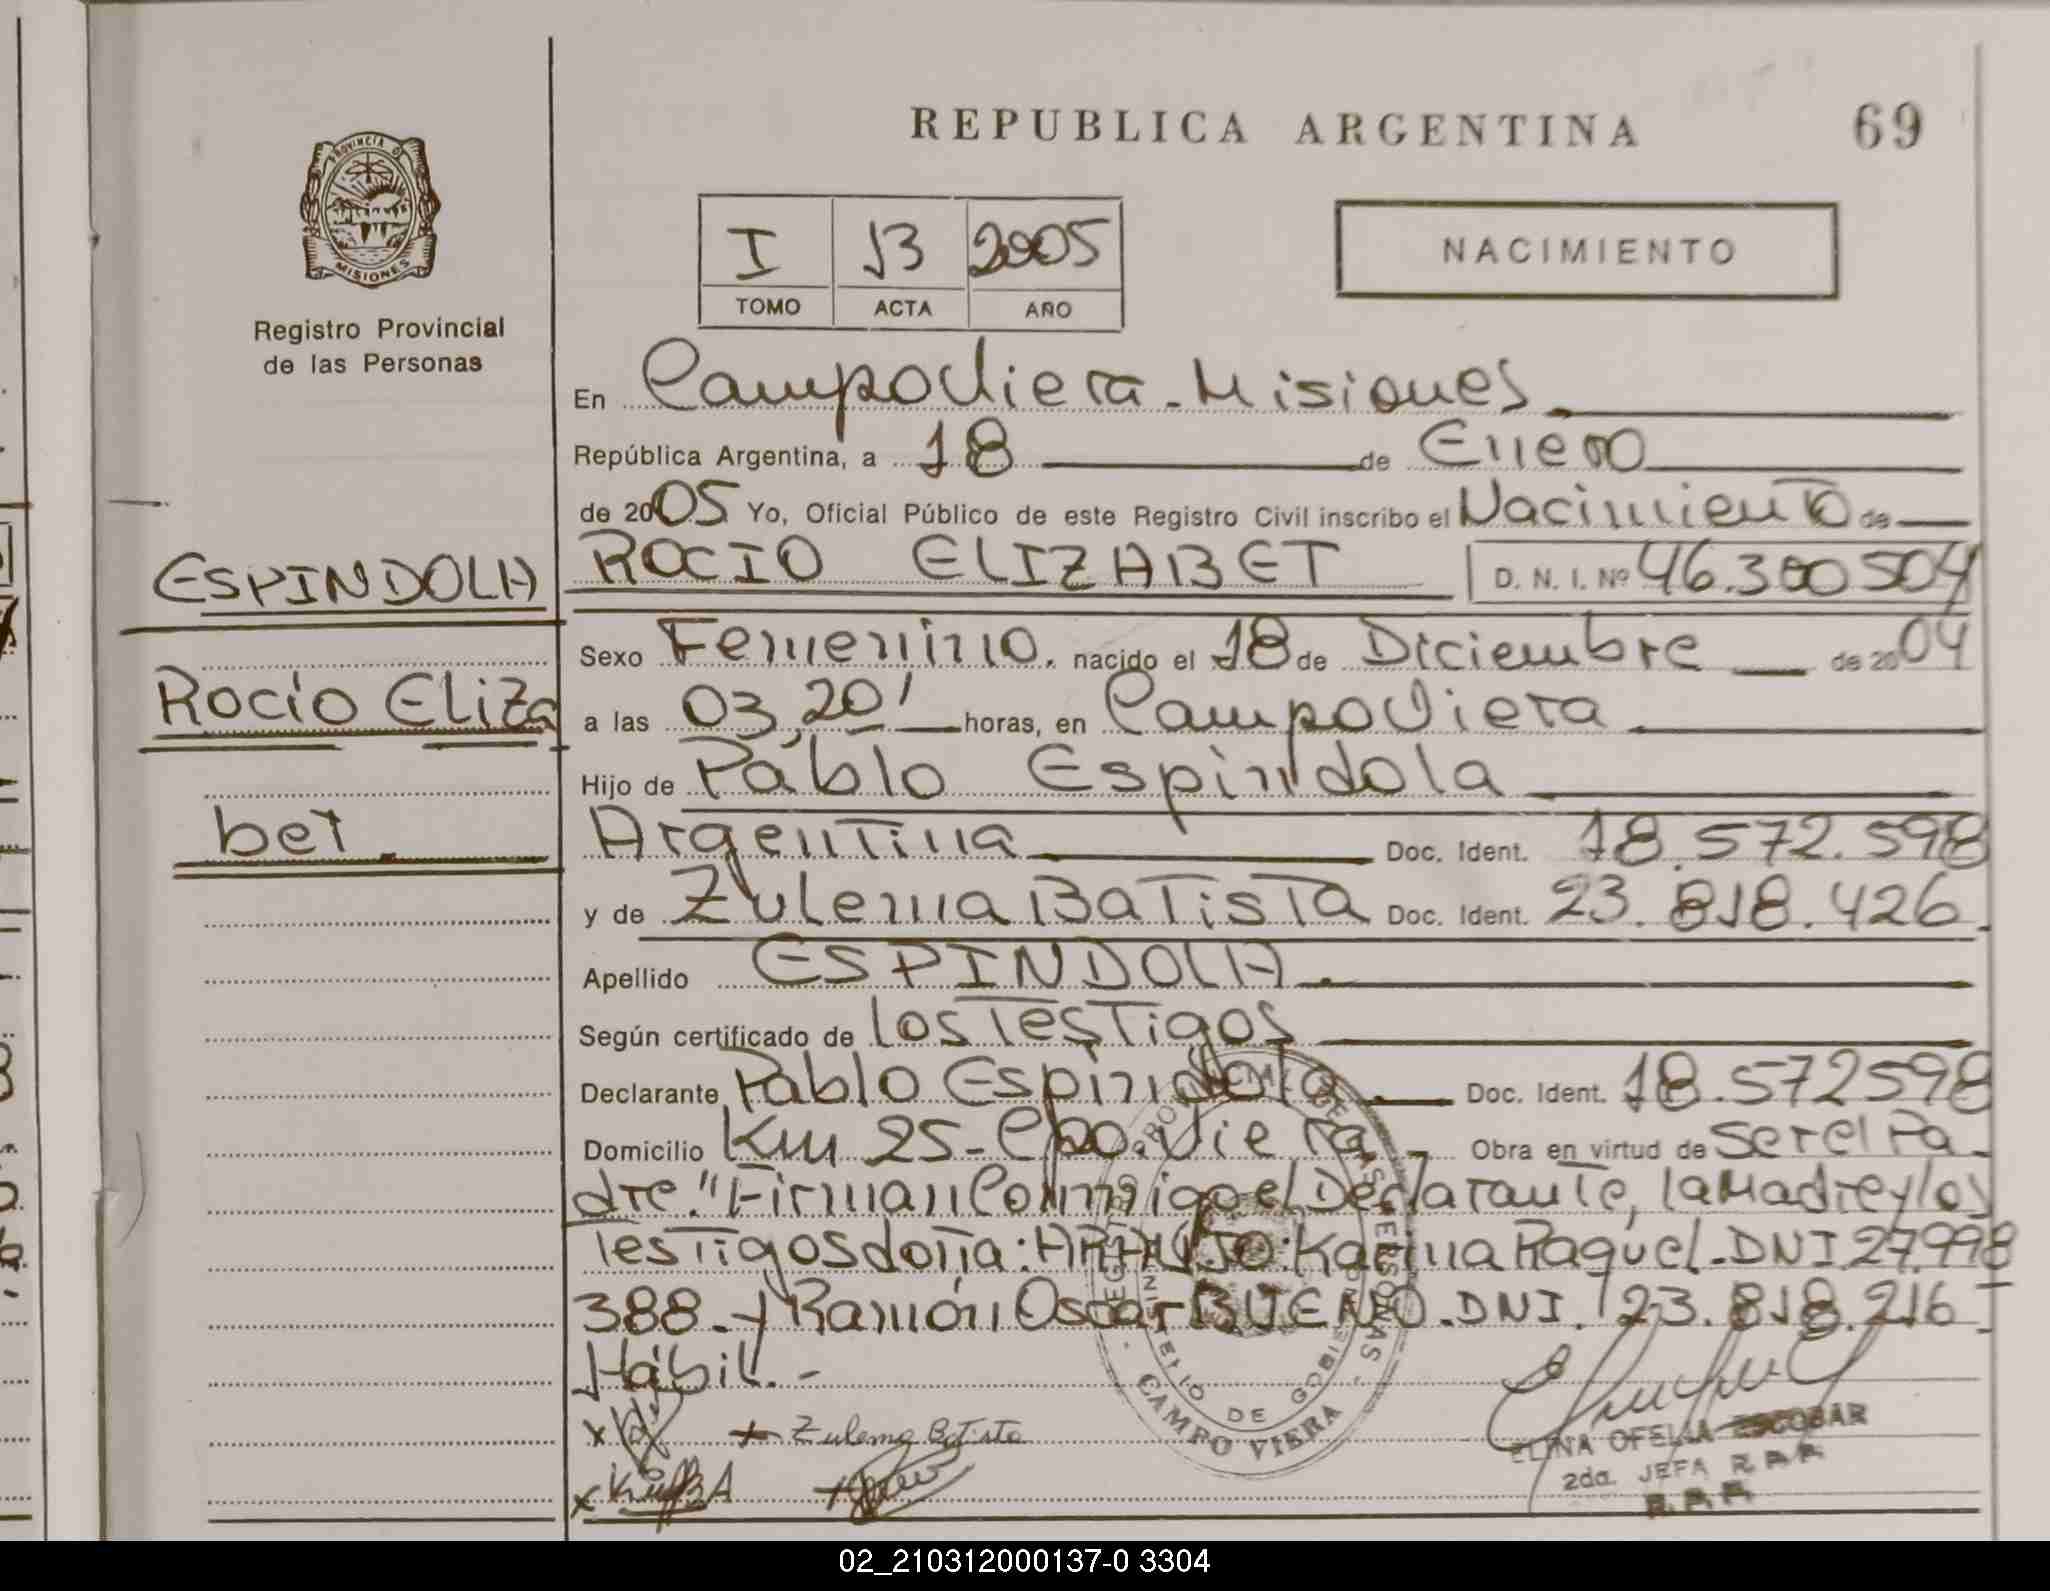 REPUBLICA ARGENTINA
69
PROVINCIA DE
MISIONES
Registro Provincial
de las Personas
I 13 2005
TOMO ACTA AÑO
NACIMIENTO
En CampoViera - Misiones
República Argentina, a 18 de Enero
de 2005 Yo, Oficial Público de este Registro Civil inscribo el Nacimiento de
ROCIO ELIZABET D. N. I. Nº 46.300504
ESPINDOLA
Rocio Eliza
bet.
Sexo Femenino. nacido el 18 de Diciembre de 2004
a las 03,20' horas, en CampoViera
Hijo de Pablo Espindola
Argentina Doc. Ident. 18.572.598
y de Zulema Batista Doc. Ident. 23.818.426.
Apellido ESPINDOLA.
Según certificado de los Testigos
Declarante Pablo Espindola Doc. Ident. 18.572598
Domicilio Km 25 - Cpo. Viera - Obra en virtud de ser el Pa
dre." Firman Conmigo el Declarante, la Madre y los
Testigos doña: ARAUJO: Karina Raquel - DNI. 27.998
388 - y Ramón Oscar BUENO. DNI. 23.818.216
Hábil. -
x + Zulema Batista
x +
CAMPO VIERA
MINISTERIO DE GOBIE
ELINA OFELIA ESCOBAR
2da. JEFA
02_210312000137-0 3304